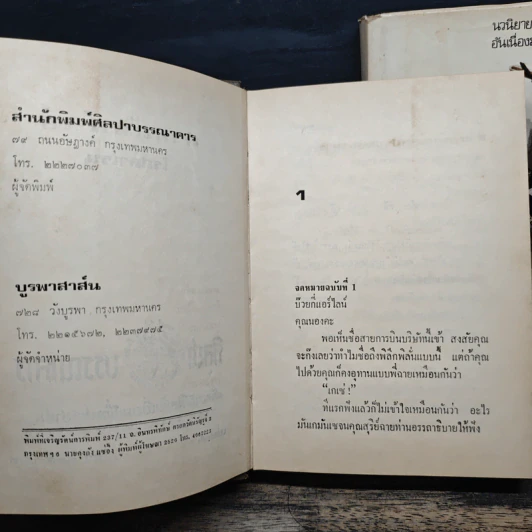 สำนักพิมพ์ศิลปาบรรณาคาร
๗๙ ถนนอัษฎางค์ กรุงเทพมหานคร
โทร. ๒๒๒๗๐๓๗
ผู้จัดพิมพ์
บูรพาสาส์น
๗๒๘ วังบูรพา กรุงเทพมหานคร
โทร. ๒๒๑๕๖๗๒, ๒๒๓๗๙๗๕
ผู้จัดจำหน่าย
พิมพ์ที่เจริญรัตน์การพิมพ์ 237/11
กรุงเทพฯ
นวนิยาย
1
จดหมายฉบับที่ 1
บ๊วยกี่แอร์ไลน์
คุณนองคะ
พอเห็นชื่อสายการบินบริษัทนี้เข้า สงสัยคุณ
จะกึงเลยว่าทำไมชื่อถึงพิลึกพิลั่นแบบนี้ แต่ถ้าคุณ
ไปด้วยคุณก็คงอุทานแบบพี่ฉายเหมือนกันว่า
"เกเซ่!"
ที่แรกพี่แล้วก็ไม่เข้าใจเหมือนกันว่า อะไร
มันเกมันเซจนคุณสุรีย์ฉายท่านอรรถาธิบายให้ฟัง